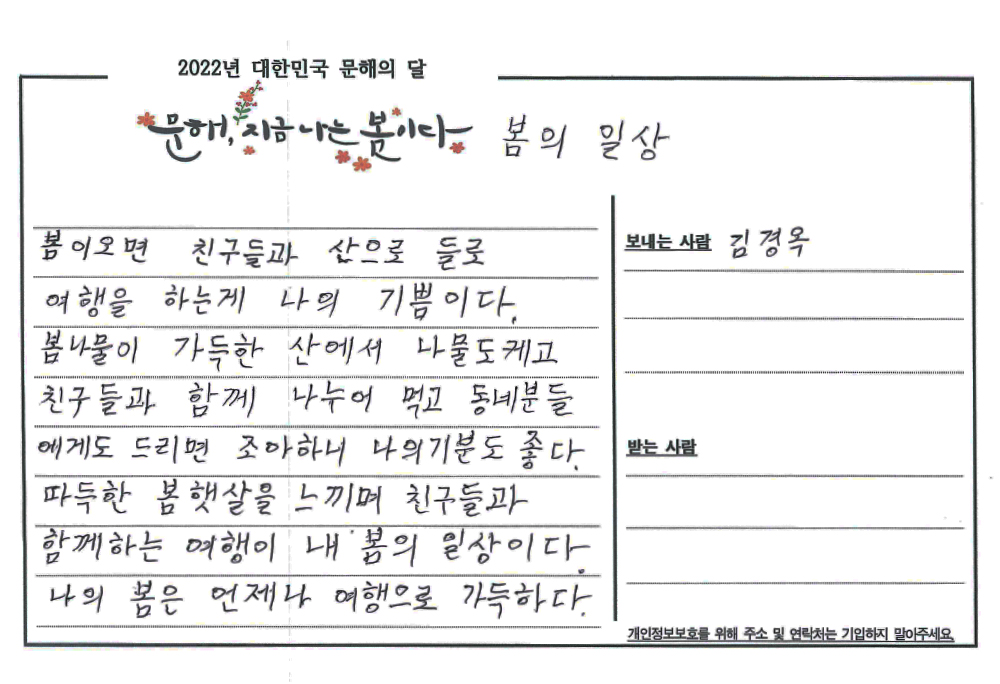 2022년 대한민국 문해의 달
문해, 지금 나는 봄이다
봄의 일상
봄이오면 친구들과 산으로 들로
여행을 하는게 나의 기쁨이다.
봄나물이 가득한 산에서 나물도케고
친구들과 함께 나누어 먹고 동네분들
에게도 드리면 조아하니 나의기분도 좋다.
따득한 봄햇살을 느끼며 친구들과
함께하는 여행이 내 봄의 일상이다.
나의 봄은 언제나 여행으로 가득하다.
보내는 사람 김경옥
받는 사람
개인정보보호를 위해 주소 및 연락처는 기입하지 말아주세요.